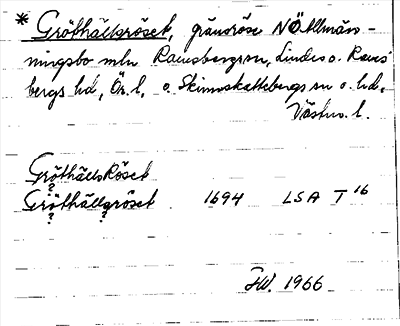 * Gröthällsröset, gränsröse NÖ Allmän-
ningsbo mln Ramsbergs sn, Lindes o. Rams-
bergs hd, Ör. l. o. Skinnskattebergs sn o. hd,
Västm. l.
Gröthälls Röset
Gröthällgröset 1694 LSA T 16
? ? ?
HW. 1966